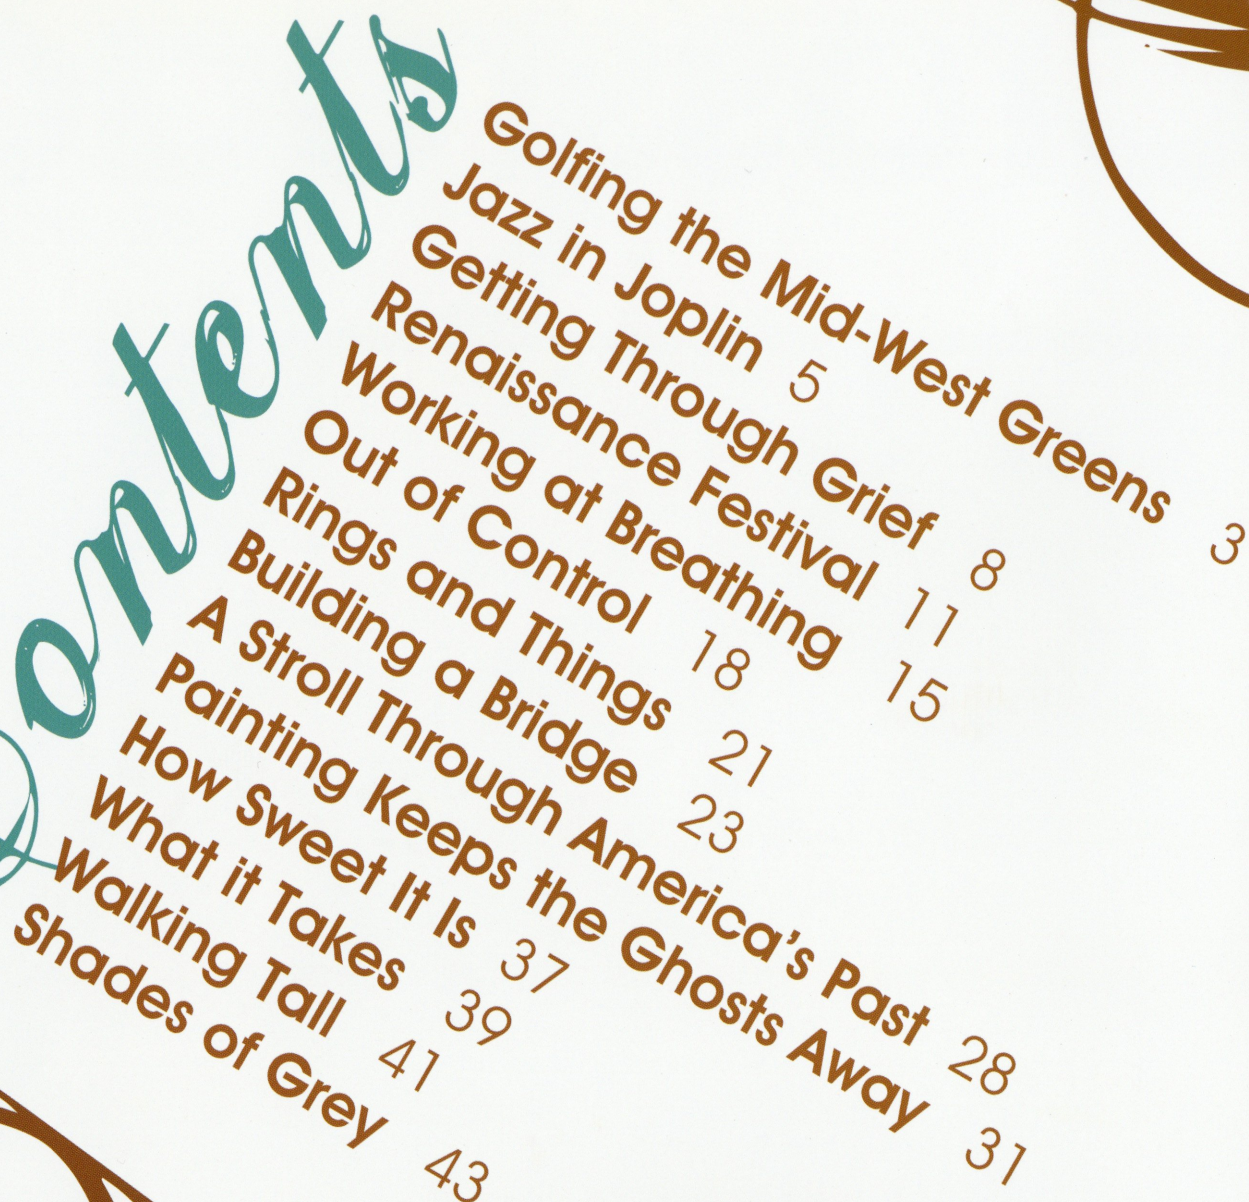 ontents
Golfing the Mid-West Greens 3
Jazz in Joplin 5
Getting Through Grief 8
Renaissance Festival 11
Working at Breathing 15
Out of Control 18
Rings and Things 21
Building a Bridge 23
A Stroll Through America's Past 28
Painting Keeps the Ghosts Away 31
How Sweet It Is 37
What it Takes 39
Walking Tall 41
Shades of Grey 43